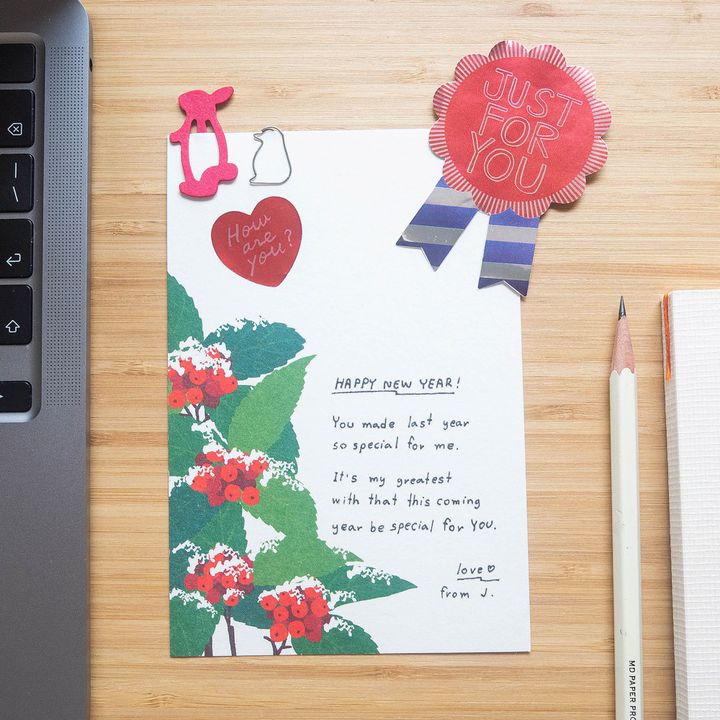 JUST
FOR
YOU
How
are
you?
HAPPY NEW YEAR!
You made last year
so special for me.
It's my greatest
with that this coming
year be special for YOU.
love♡
from J.
MD PAPER PRO